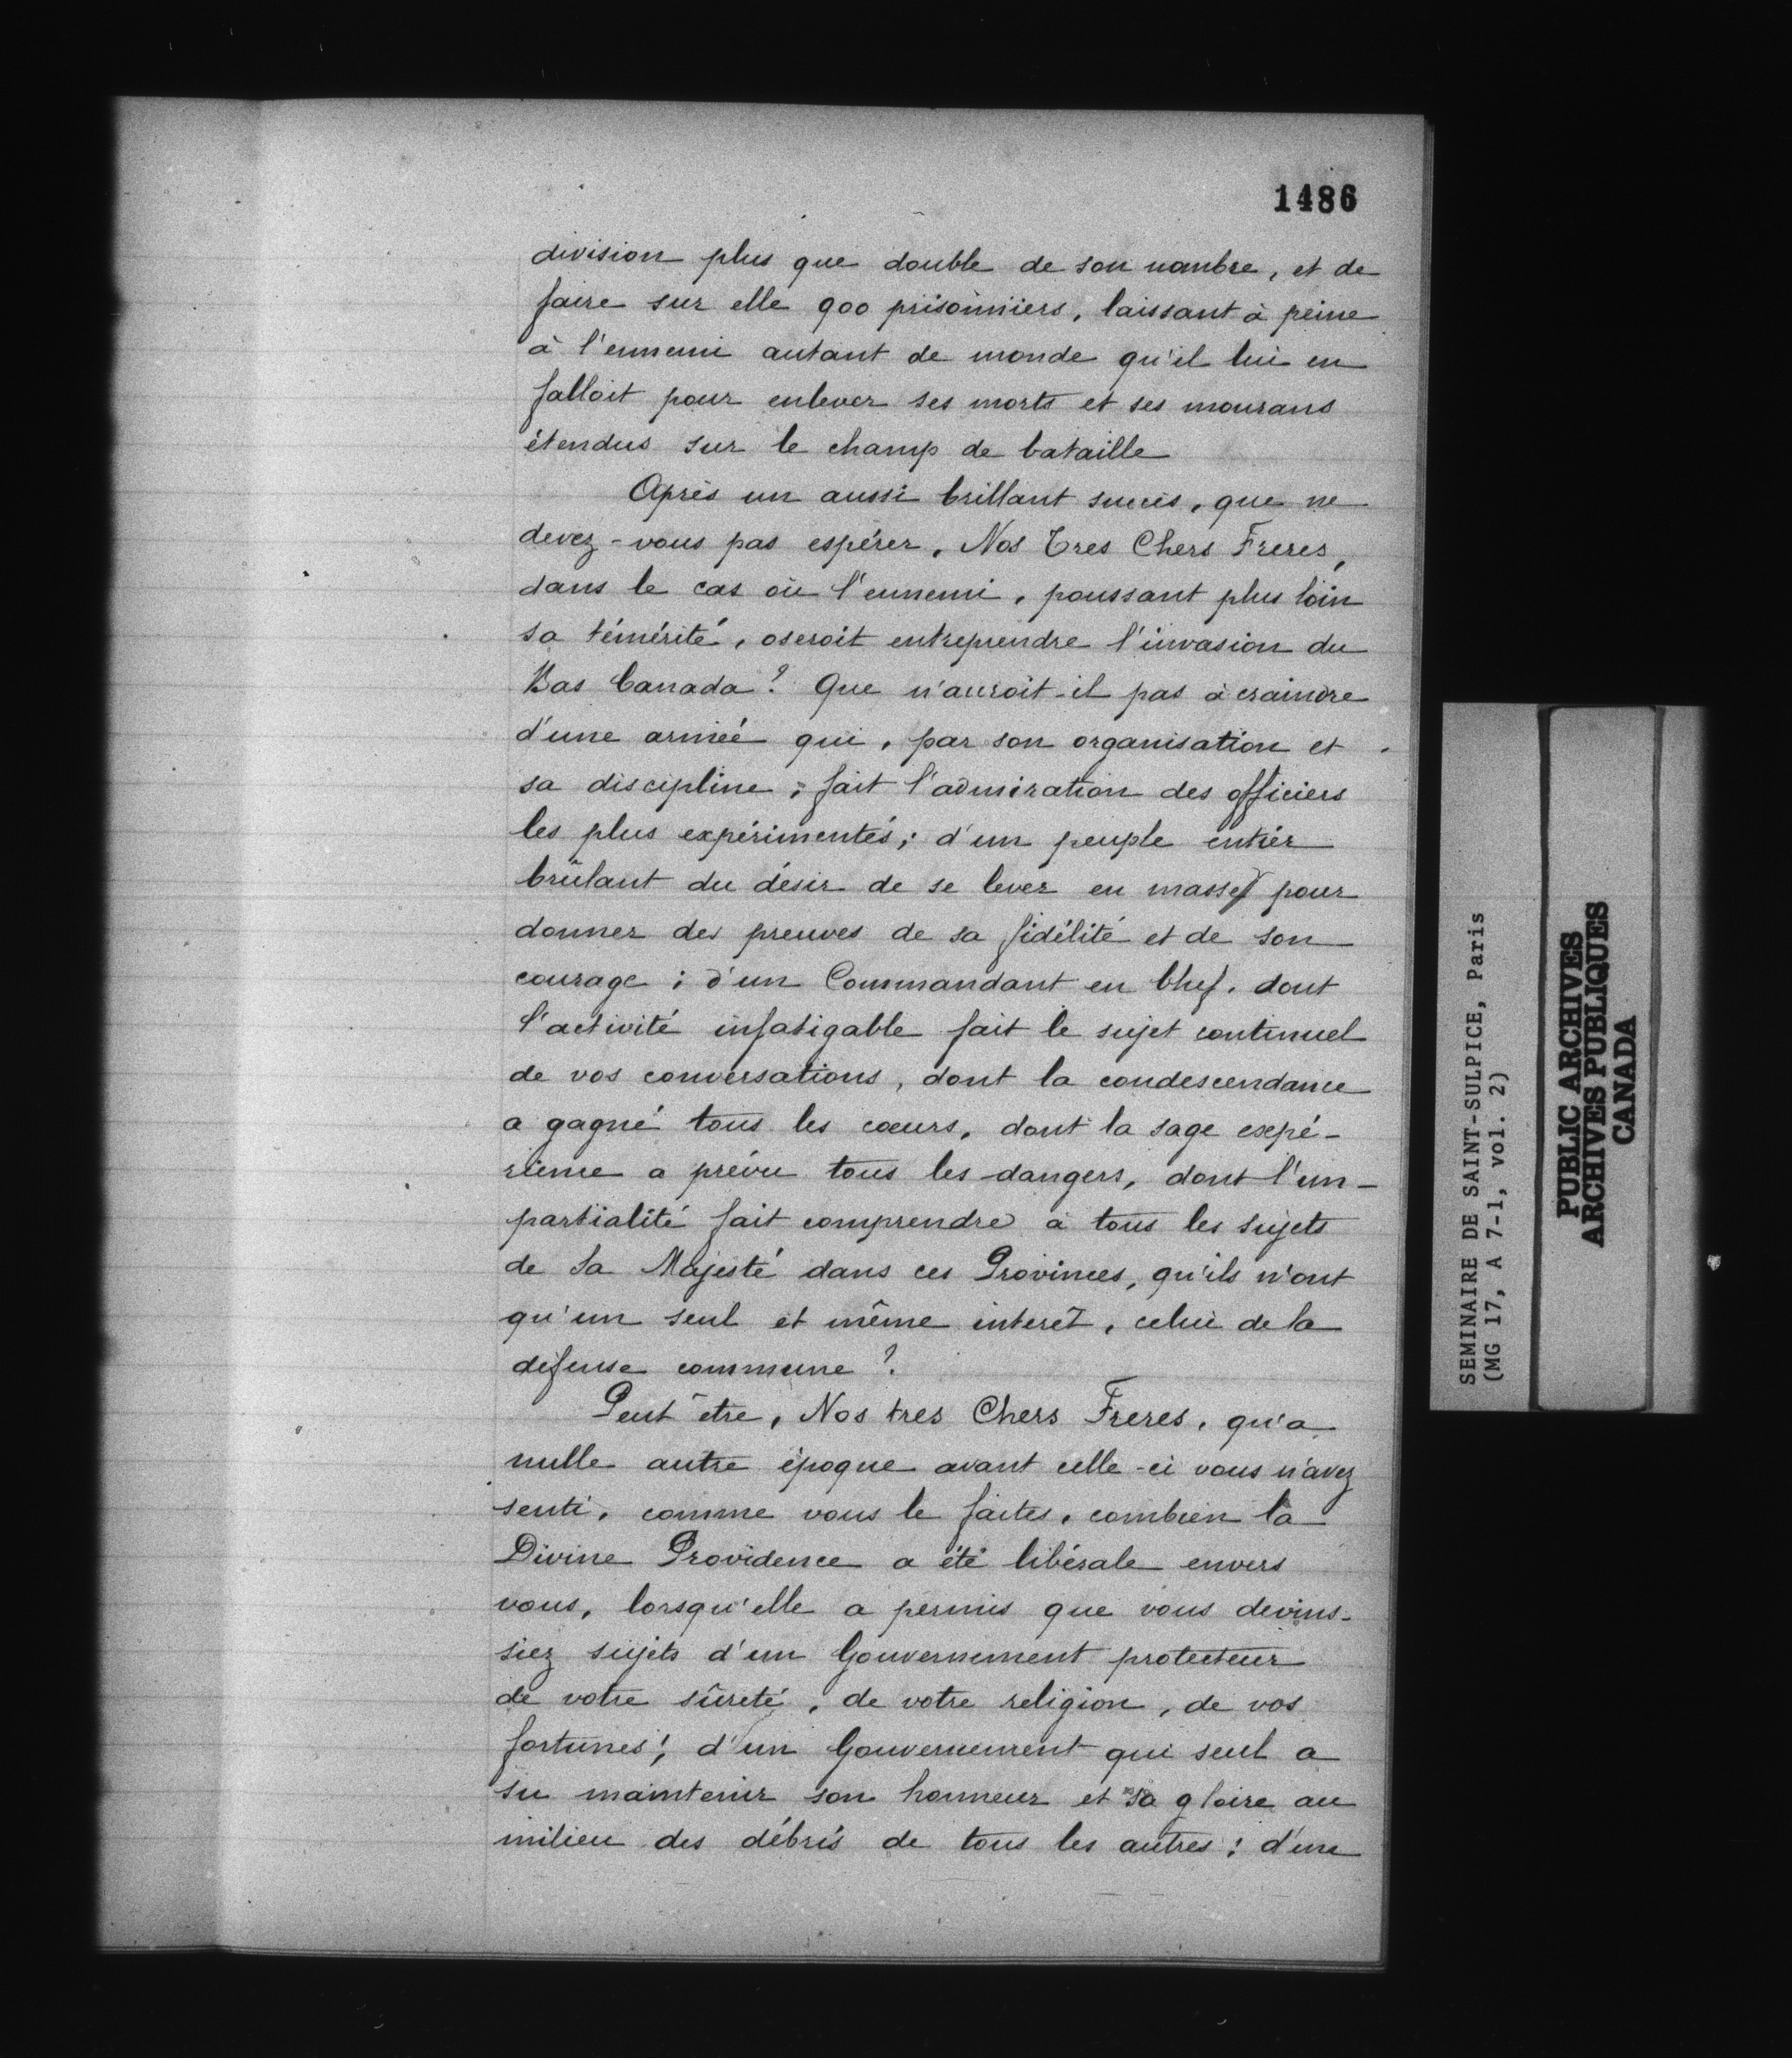 1486
division plus que double de son nombre, et de
faire sur elle 900 prisonniers, laissant à peine
à l'ennemi autant de monde qu'il lui en
falloit pour enlever ses morts et ses mourans
étendus sur le champ de bataille
Après un aussi brillant succès, que ne
devez-vous pas espérer, Nos Tres Chers Freres,
dans le cas où l'ennemi, poussant plus loin
sa témérité, oseroit entreprendre l'invasion du
Bas Canada? Que n'auroit-il pas à craindre
d'une armée qui, par son organisation et
sa discipline, fait l'admiration des officiers
les plus expérimentés; d'un peuple entier
brûlant du désir de se lever en masse pour
donner des preuves de sa fidélité et de son
courage; d'un Commandant en Chef, dont
l'activité infatigable fait le sujet continuel
de vos conversations, dont la condescendance
a gagné tous les cœurs, dont la sage expé-
rience a prévu tous les dangers, dont l'im-
partialité fait comprendre à tous les sujets
de Sa Majesté dans ces Provinces, qu'ils n'ont
qu'un seul et même interet, celui de la
defense commune?
Peut être, Nos tres Chers Freres, qu'a
nulle autre époque avant celle-ci vous n'avez
senti, comme vous le faites, combien la
Divine Providence a été libérale envers
vous, lorsqu'elle a permis que vous devins-
siez sujets d'un Gouvernement protecteur
de votre sûreté, de votre religion, de vos
fortunes; d'un Gouvernement qui seul a
su maintenir son honneur et sa gloire au
milieu des débris de tous les autres; d'une
SEMINAIRE DE SAINT-SULPICE, Paris
(MG 17, A 7-1, vol. 2)
PUBLIC ARCHIVES
ARCHIVES PUBLIQUES
CANADA